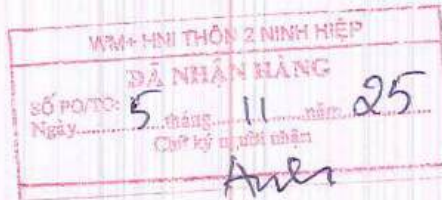 WM+ HNI THÔN 2 NINH HIỆP
ĐÃ NHẬN HÀNG
SỐ PO/TO:
Ngày 5 tháng 11 năm 25
Chữ ký người nhận